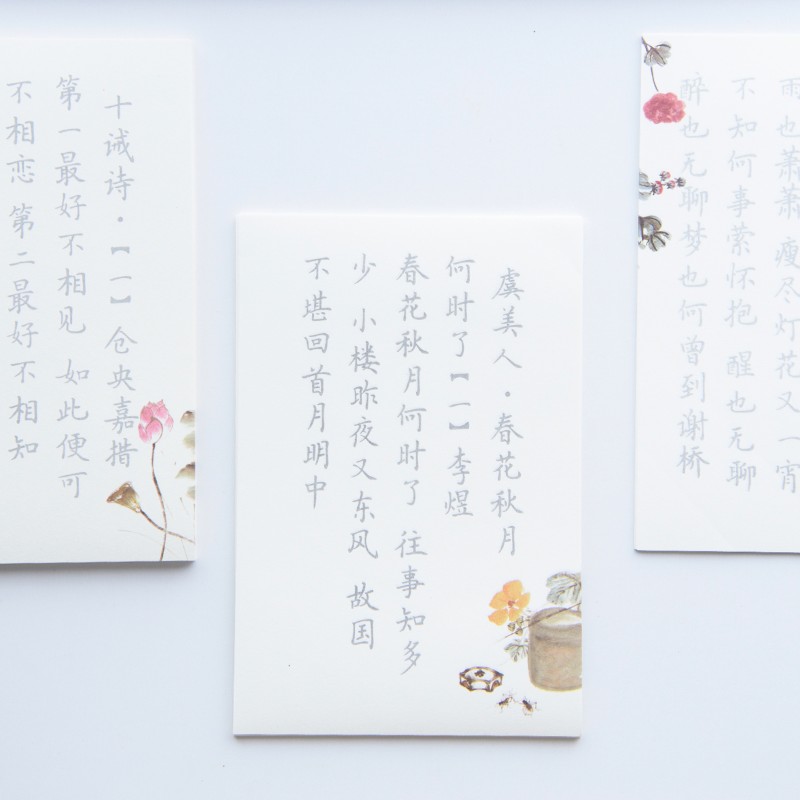 十诫诗·【一】仓央嘉措
第一最好不相见 如此便可
不相恋 第二最好不相知
虞美人·春花秋月
何时了【一】李煜
春花秋月何时了 往事知多
少 小楼昨夜又东风 故国
不堪回首月明中
雨也萧萧 瘦尽灯花又一宵
不知何事萦怀抱 醒也无聊
醉也无聊梦也何曾到谢桥